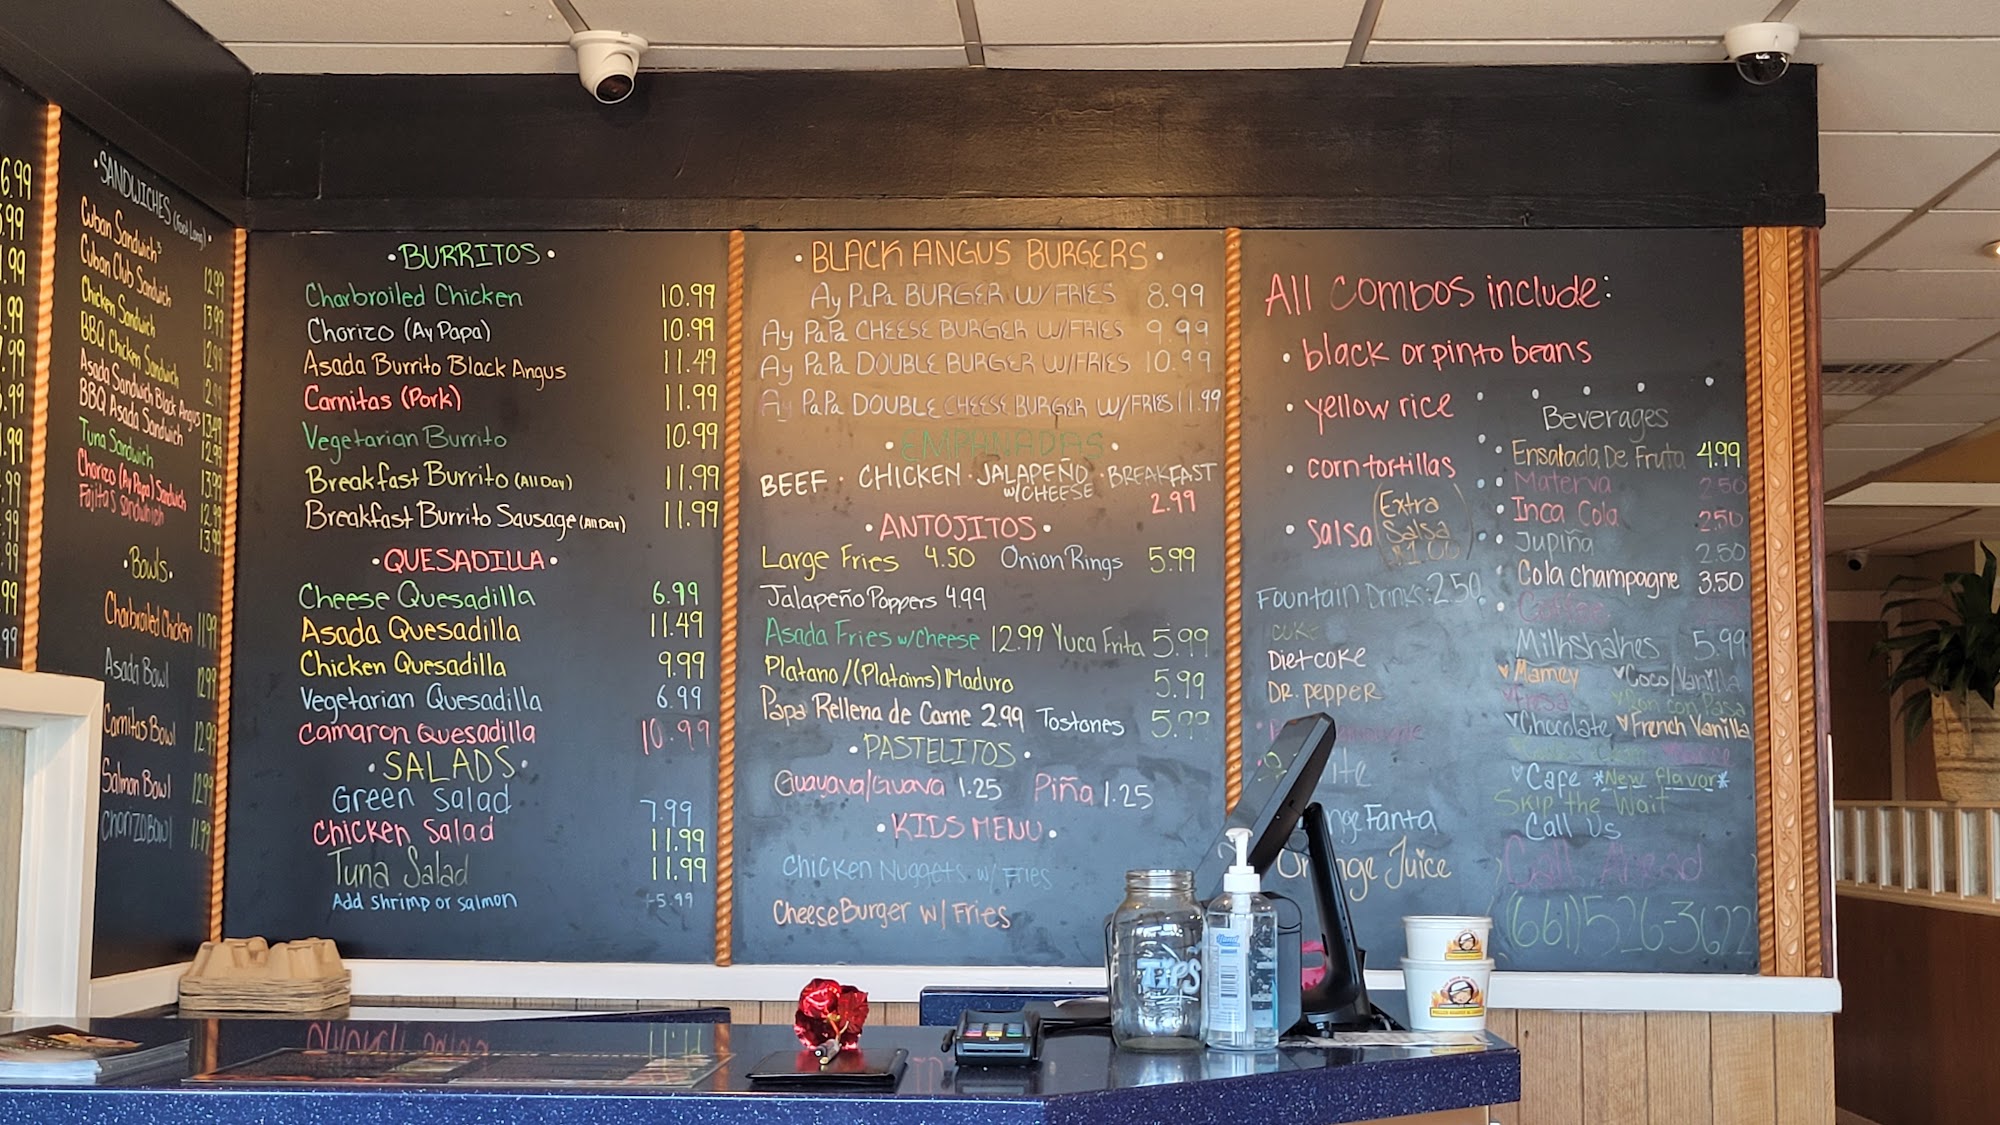 6.99
.99
.99
.99
.99
.99
.99
.99
.99
.99
.99
.99
• SANDWICHES (Foot Long) •
Cuban Sandwich 12.99
Cuban Club Sandwich 13.99
Chicken Sandwich 12.99
BBQ Chicken Sandwich 12.99
Asada Sandwich Black Angus 13.49
BBQ Asada Sandwich 12.99
Tuna Sandwich 13.99
Chorizo (Ay Papa) Sandwich 12.99
Fajitas Sandwhich 13.99
• Bowls •
Charbroiled Chicken 11.99
Asada Bowl 12.99
Carnitas Bowl 12.99
Salmon Bowl 12.99
Chorizo Bowl 11.99
• BURRITOS •
Charbroiled Chicken 10.99
Chorizo (Ay Papa) 10.99
Asada Burrito Black Angus 11.49
Carnitas (Pork) 11.99
Vegetarian Burrito 10.99
Breakfast Burrito (All Day) 11.99
Breakfast Burrito Sausage (All Day) 11.99
• QUESADILLA •
Cheese Quesadilla 6.99
Asada Quesadilla 11.49
Chicken Quesadilla 9.99
Vegetarian Quesadilla 6.99
Camaron Quesadilla 10.99
• SALADS •
Green Salad 7.99
Chicken Salad 11.99
Tuna Salad 11.99
Add shrimp or salmon +5.99
• BLACK ANGUS BURGERS •
Ay PaPa BURGER W/ FRIES 8.99
Ay PaPa CHEESE BURGER W/FRIES 9.99
Ay PaPa DOUBLE BURGER W/FRIES 10.99
Ay PaPa DOUBLE CHEESE BURGER W/FRIES 11.99
• EMPANADAS •
BEEF • CHICKEN • JALAPEÑO W/CHEESE • BREAKFAST
2.99
• ANTOJITOS •
Large Fries 4.50 Onion Rings 5.99
Jalapeño Poppers 4.99
Asada Fries w/cheese 12.99 Yuca Frita 5.99
Platano/(Platains) Maduro 5.99
Papa Rellena de Carne 2.99 Tostones 5.99
• PASTELITOS •
Guayava/Guava 1.25 Piña 1.25
• KIDS MENU •
Chicken Nuggets w/ Fries
Cheese Burger w/ Fries
All combos include:
• black or pinto beans
• yellow rice
• corn tortillas
• salsa
Extra
Salsa
$1.00
Fountain Drinks: 2.50
coke
Diet coke
DR. pepper
ite
nge Fanta
Orange Juice
Beverages
Ensalada De Fruta 4.99
Materva 2.50
Inca Cola 2.50
Jupiña 2.50
Cola champagne 3.50
Coffee
Milkshakes 5.99
Mamey Coco/Vanilla
Fresa Ron con Pasa
Chocolate French Vanilla
Cafe *New flavor*
Skip the Wait
Call Us
Call Ahead
(661) 526-3622
TIPS